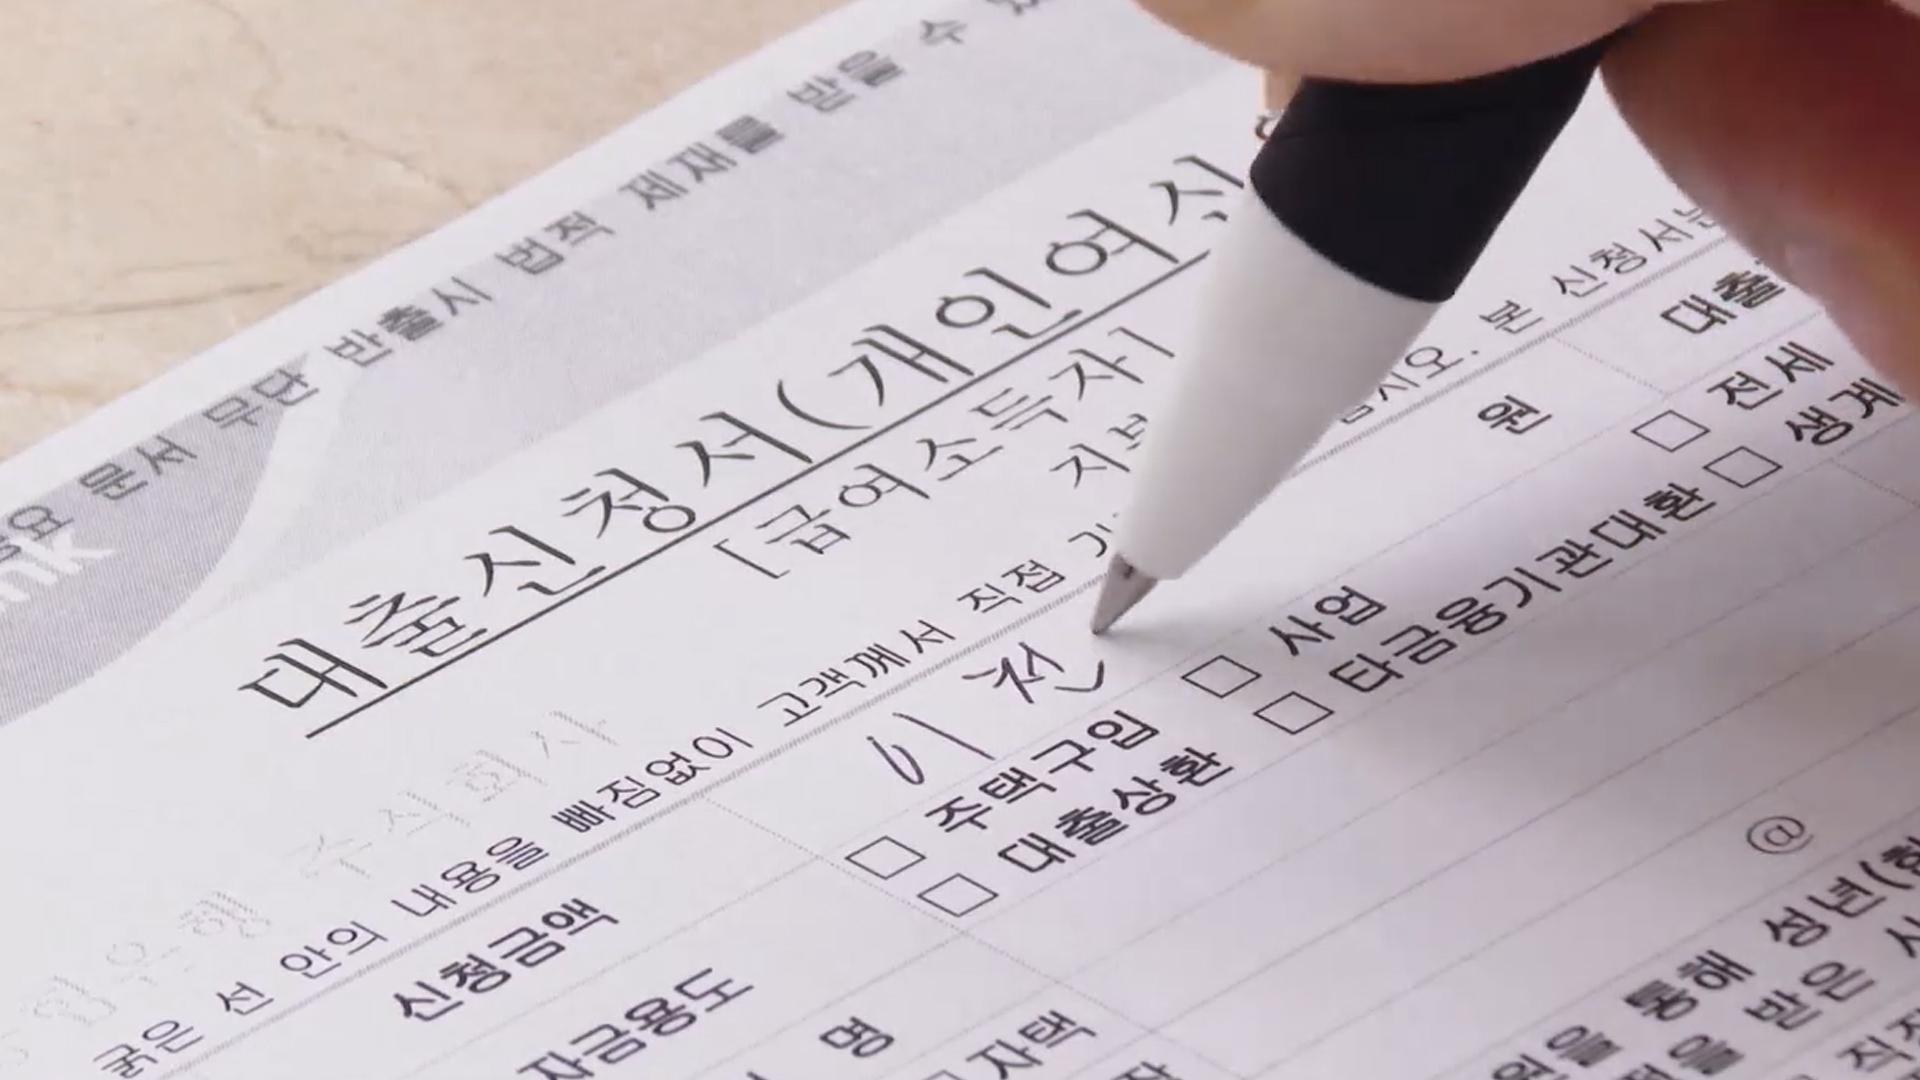 문서 무단 반출시 법적 제재를 받을 수
nk
대출신청서(개인여신
[급여소득자]
주식회사
굵은 선 안의 내용을 빠짐없이 고객께서 직접 기 십시오. 본 신청서는
신청금액 이천 원 대출
자금용도 □ 주택구입 □ 사업 □ 전세
□ 대출상환 □ 타금융기관대환 □ 생계
명
@
자택
통해 성년(
받은